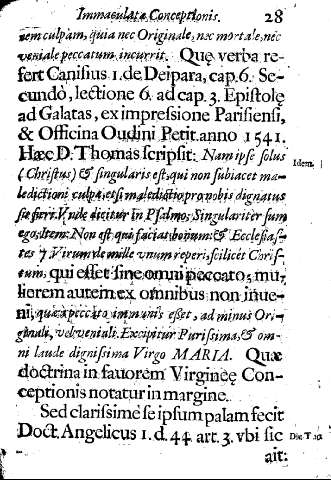 Immaculatæ Conceptionis. 28
rem culpam, quia nec Originale, nec mortale, nec
veniale peccatum incurrit. Quę verba re-
fert Canisius 1. de Deipara, cap. 6. Se-
cundò, lectione 6. ad cap. 3. Epistolę
ad Galatas, ex impressione Parisiensi,
& Officina Oudini Petit. anno 1541.
Hæc D. Thomas scripsit: Nam ipse solus
Idem.
(Christus) & singularis est, qui non subiacet ma-
ledictioni culpæ, etsi maledictio pro nobis dignatus
sit fieri. Vnde dicitur in Psalmo, Singulariter sum
ego. Item: Non est qui faciat bonum: & Ecclesias-
tes 7. Virum de mille vnum reperi, scilicèt Chris-
tum, qui esset sine omni peccato, mu-
lierem autem ex omnibus non inue-
ni, quæ à peccato immunis esset, ad minus Ori-
ginali, vel veniali. Excipitur Purissima, & om-
ni laude dignissima Virgo MARIA. Quæ
doctrina in fauorem Virgineę Con-
ceptionis notatur in margine.
Sed clarissimè se ipsum palam fecit
Doct. Angelicus 1. d. 44. art. 3. vbi sic
Div. T.
ait: